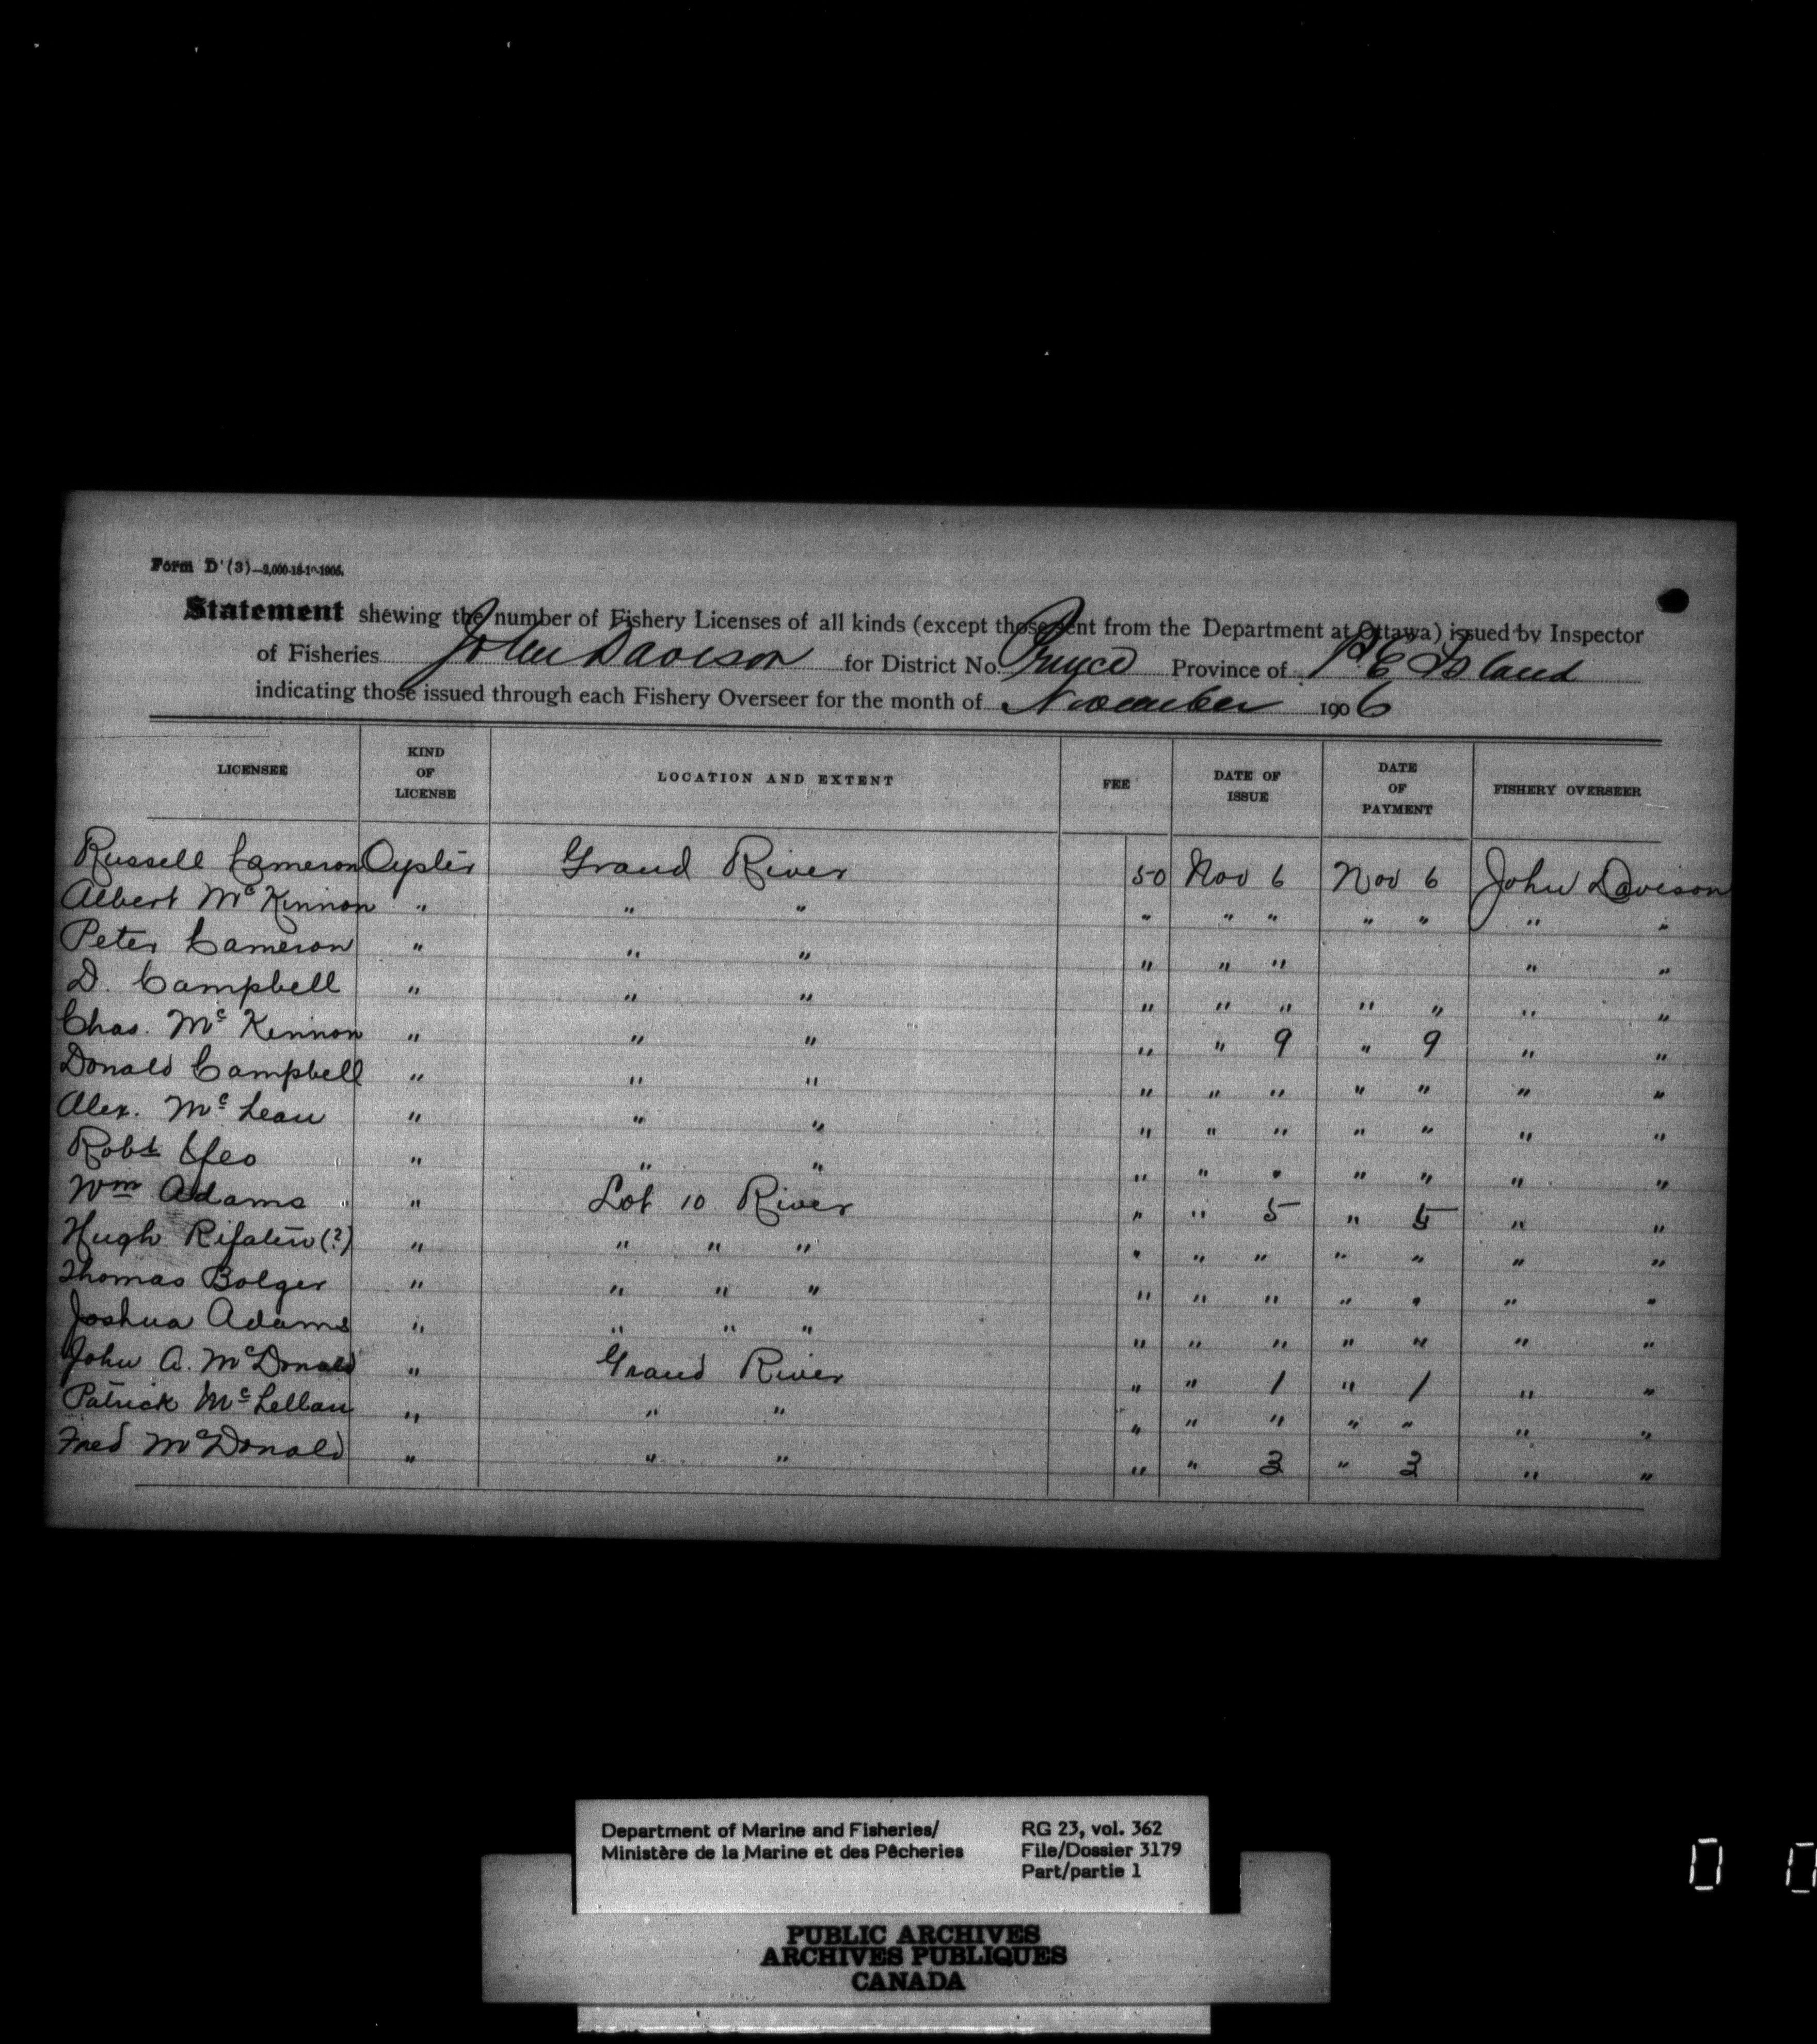 Form D (3)—2,000-18-1-1906.
Statement shewing the number of Fishery Licenses of all kinds (except those sent from the Department at Ottawa) issued by Inspector
of Fisheries John Davison for District No. Prince Province of P E Island
indicating those issued through each Fishery Overseer for the month of November 1906
LICENSEE KIND OF LICENSE LOCATION AND EXTENT FEE DATE OF ISSUE DATE OF PAYMENT FISHERY OVERSEER
Russell Cameron Oyster Grand River 50 Nov 6 Nov 6 John Davison
Albert McKinnon " " " " " " " " " "
Peter Cameron " " " " " " " "
D. Campbell " " " " " " " " " "
Chas. McKinnon " " " " " 9 " 9 " "
Donald Campbell " " " " " " " " " "
Alex. McLean " " " " " " " " " "
Robt " " " " " " " " " "
Wm Adams " Lot 10 River " " 5 " 5 " "
Hugh (?) " " " " " " " " " " "
Thomas Bolger " " " " " " " " " " "
Joshua Adams " " " " " " " " " " "
John A. McDonald " Grand River " " 1 " 1 " "
Patrick McLellan " " " " " " " " " "
Fred McDonald " " " " " 3 " 3 " "
Department of Marine and Fisheries/ RG 23, vol. 362
Ministère de la Marine et des Pêcheries File/Dossier 3179
Part/partie 1
PUBLIC ARCHIVES
ARCHIVES PUBLIQUES
CANADA